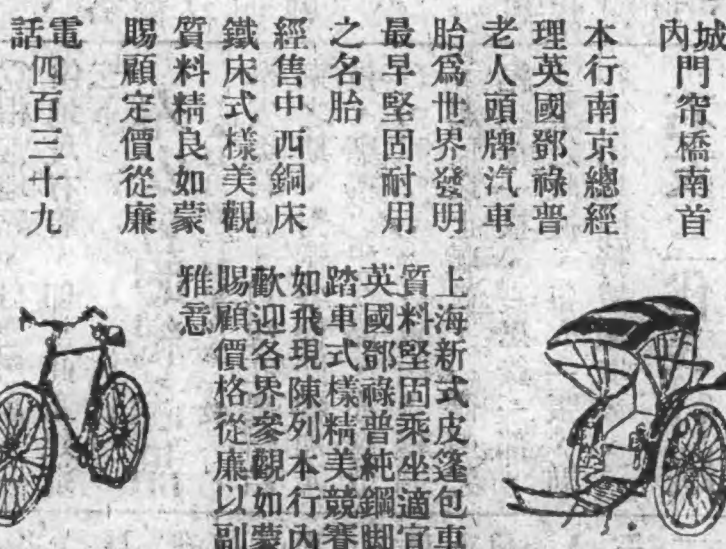 城內門帘橋南首
本行南京總經
理英國鄧祿普
老人頭牌汽車
胎爲世界發明
最早堅固耐用
之名胎
經售中西銅床
鐵床式樣美觀
質料精良如蒙
賜顧定價從廉
電話四百三十九
上海新式皮篷包車
質料堅固乘坐適宜
英國鄧祿普純鋼脚
踏車式樣精美競賽
如飛現陳列本行內
歡迎各界參觀如蒙
賜顧價格從廉以副
雅意